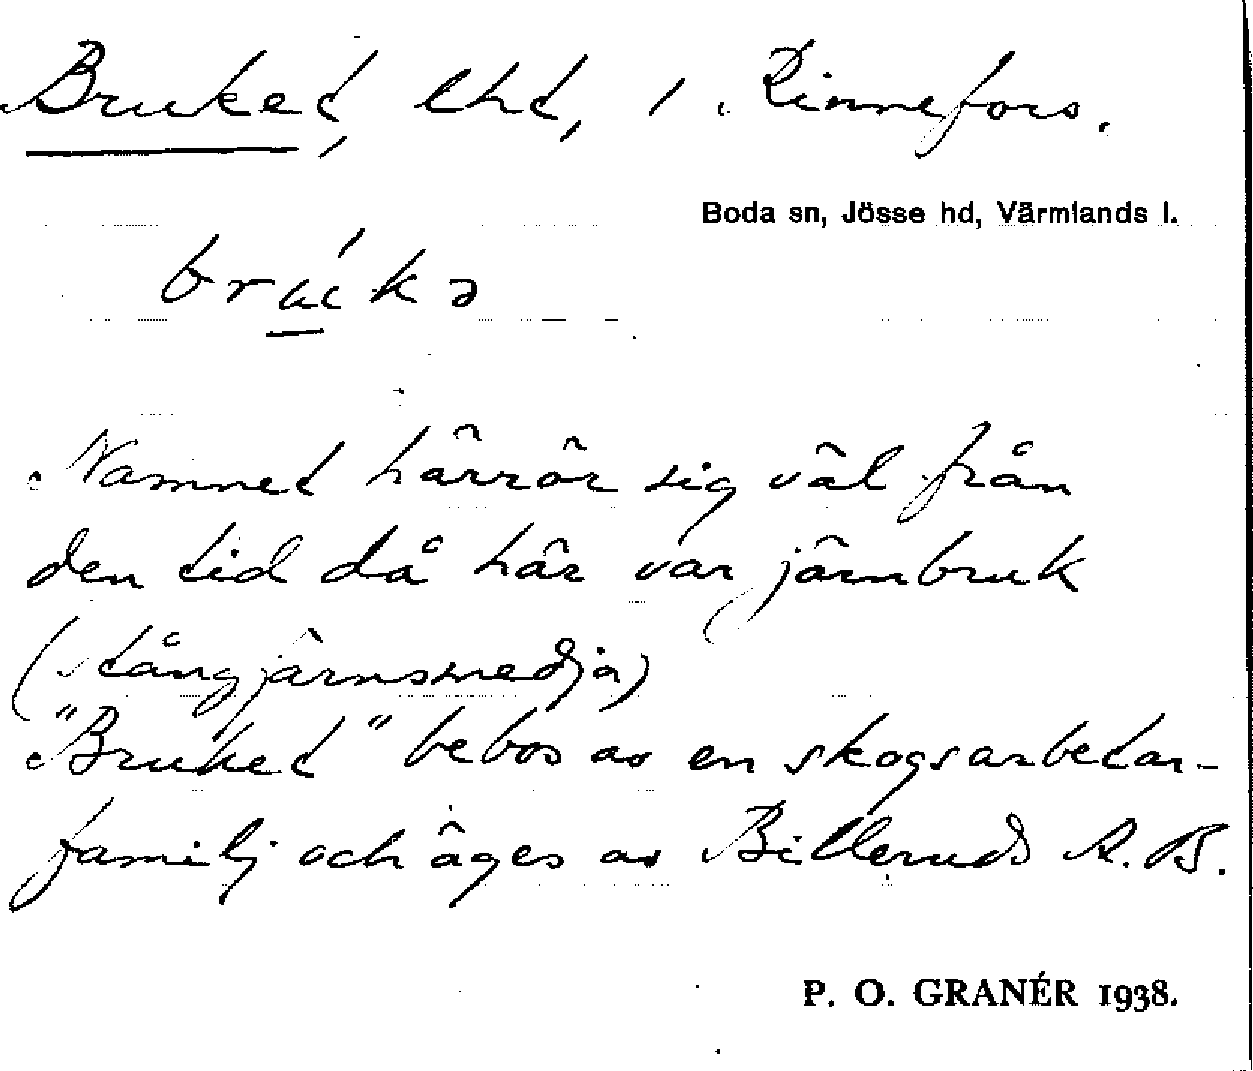 Bruket, lht, 1. Rinnefors.
Boda sn, Jösse hd, Värmlands l.
Namnet härrör sig väl från
den tid då här var järnbruk
(stångjärnsmedja)
"Bruket" bebos av en skogsarbetar-
familj och äges av Billeruds A.B.
P. O. GRANÉR 1938.